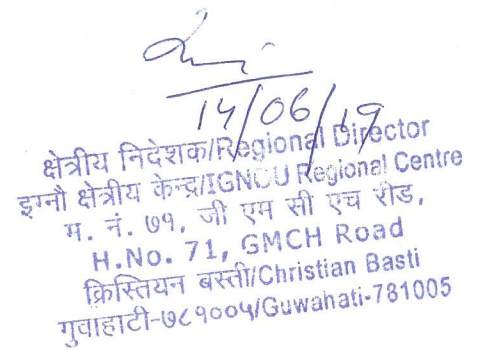 14/06/19
क्षेत्रीय निदेशक/Regional Director
इग्नौ क्षेत्रीय केन्द्र/IGNOU Regional Centre
म. नं. ७१, जी एम सी एच रोड,
H.No. 71, GMCH Road
क्रिस्तियन बस्ती/Christian Basti
गुवाहाटी-७८१००५/Guwahati-781005